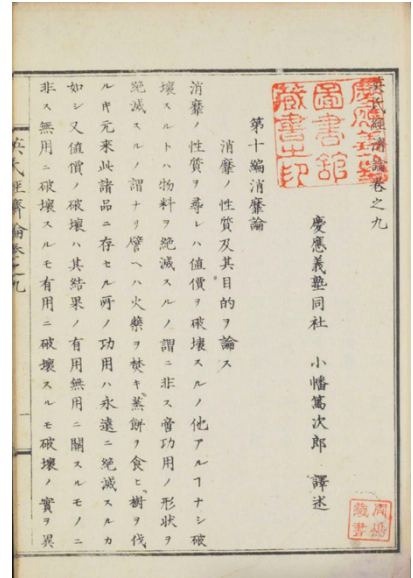 英氏經濟論卷之九
慶應義塾同社 小幡篤次郎 譯述
第十編消靡論
消靡ノ性質及其目的ヲ論ス
消靡ノ性質ヲ尋レハ値價ヲ破壞スルノ他アルヿナシ破
壞スルトハ物料ヲ絶滅スルノ謂ニ非ス啻功用ノ形狀ヲ
絶滅スルノ謂ナリ譬ヘハ火藥ヲ焚キ蒸餅ヲ食ヒ樹ヲ伐
ルキ元來此諸品ニ存セル所ノ功用ハ永遠ニ絶滅スルカ
如シ又値價ノ破壞ハ其結果ノ有用無用ニ關スルモノニ
非ス無用ニ破壞スルモ有用ニ破壞スルモ破壞ノ實ヲ異
英氏經濟論卷之九
慶應義塾
圖書館
藏書之印
藏書